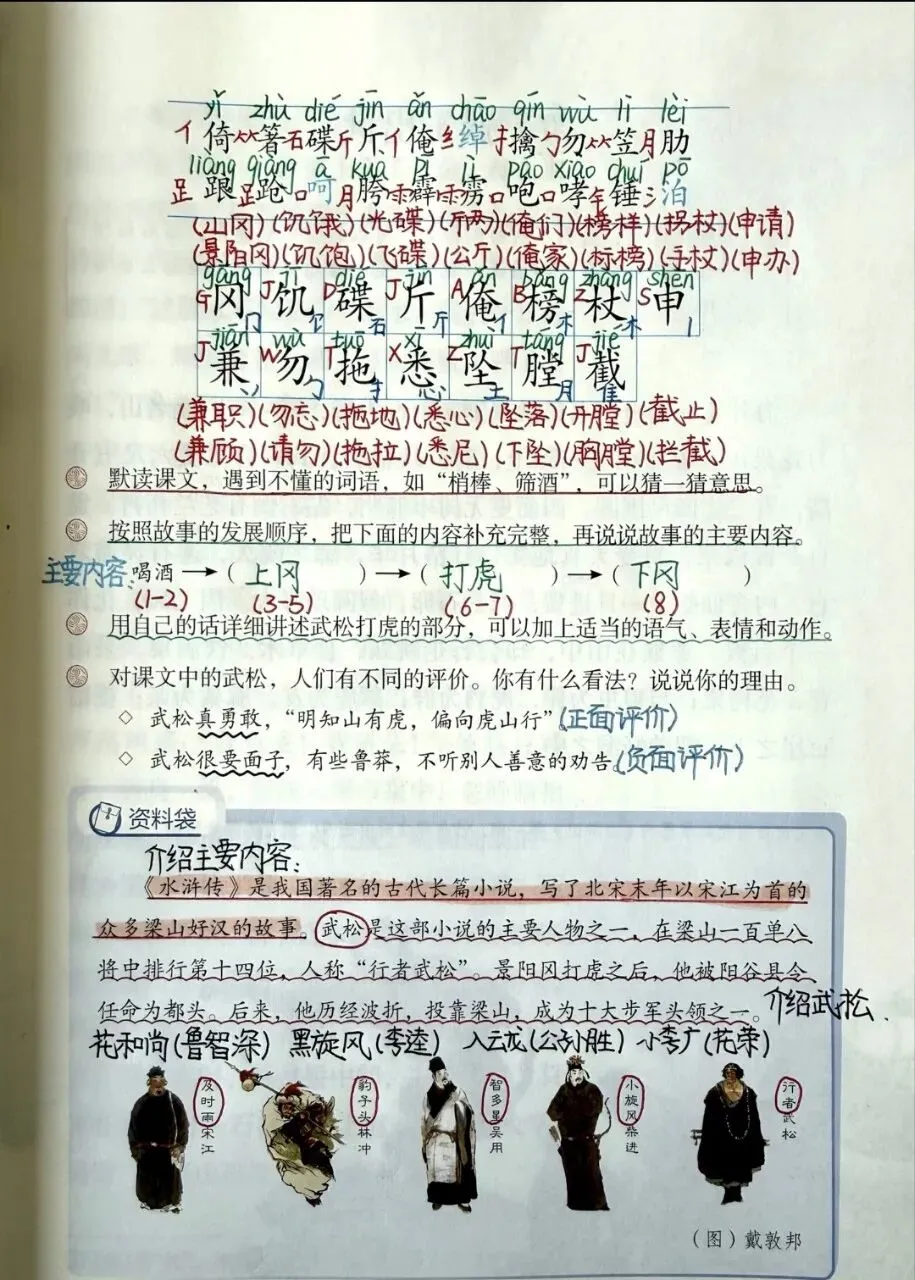 yǐ zhù dié jīn ǎn chāo qín wù lì lèi
亻倚⺮箸石碟斤斤亻俺纟绰扌擒勹勿⺮笠月肋
liàng qiàng ā kuà pī lì páo xiào chuí pō
足踉足跄口呵月胯雨霹雨雳口咆口哮钅锤氵泊
(山冈)(饥饿)(光碟)(斤两)(俺们)(榜样)(拐杖)(申请)
(景阳冈)(饥饱)(飞碟)(公斤)(俺家)(标榜)(手杖)(申办)
gāng jī dié jīn ǎn bǎng zhàng shēn
G冈冂 J饥饣 D碟石 J斤斤 A俺亻 B榜木 Z杖木 S申丨
jiān wù tuō xī zhuì táng jié
J兼丷 W勿勹 T拖扌 X悉心 Z坠土 T膛月 J截隹
(兼职)(勿忘)(拖地)(悉心)(坠落)(开膛)(截止)
(兼顾)(请勿)(拖拉)(悉尼)(下坠)(胸膛)(拦截)
默读课文，遇到不懂的词语，如“梢棒、筛酒”，可以猜一猜意思。
按照故事的发展顺序，把下面的内容补充完整，再说说故事的主要内容。
主要内容:喝酒→(上冈)→(打虎)→(下冈)
(1-2) (3-5) (6-7) (8)
用自己的话详细讲述武松打虎的部分，可以加上适当的语气、表情和动作。
对课文中的武松，人们有不同的评价。你有什么看法？说说你的理由。
◇ 武松真勇敢，“明知山有虎，偏向虎山行”(正面评价)
◇ 武松很要面子，有些鲁莽，不听别人善意的劝告。(负面评价)
资料袋
介绍主要内容:
《水浒传》是我国著名的古代长篇小说，写了北宋末年以宋江为首的
众多梁山好汉的故事。武松是这部小说的主要人物之一，在梁山一百单八
将中排行第十四位，人称“行者武松”。景阳冈打虎之后，他被阳谷县令
任命为都头。后来，他历经波折，投靠梁山，成为十大步军头领之一。介绍武松.
花和尚(鲁智深) 黑旋风(李逵) 入云龙(公孙胜) 小李广(花荣)
及时雨宋江
豹子头林冲
智多星吴用
小旋风柴进
行者武松
（图）戴敦邦